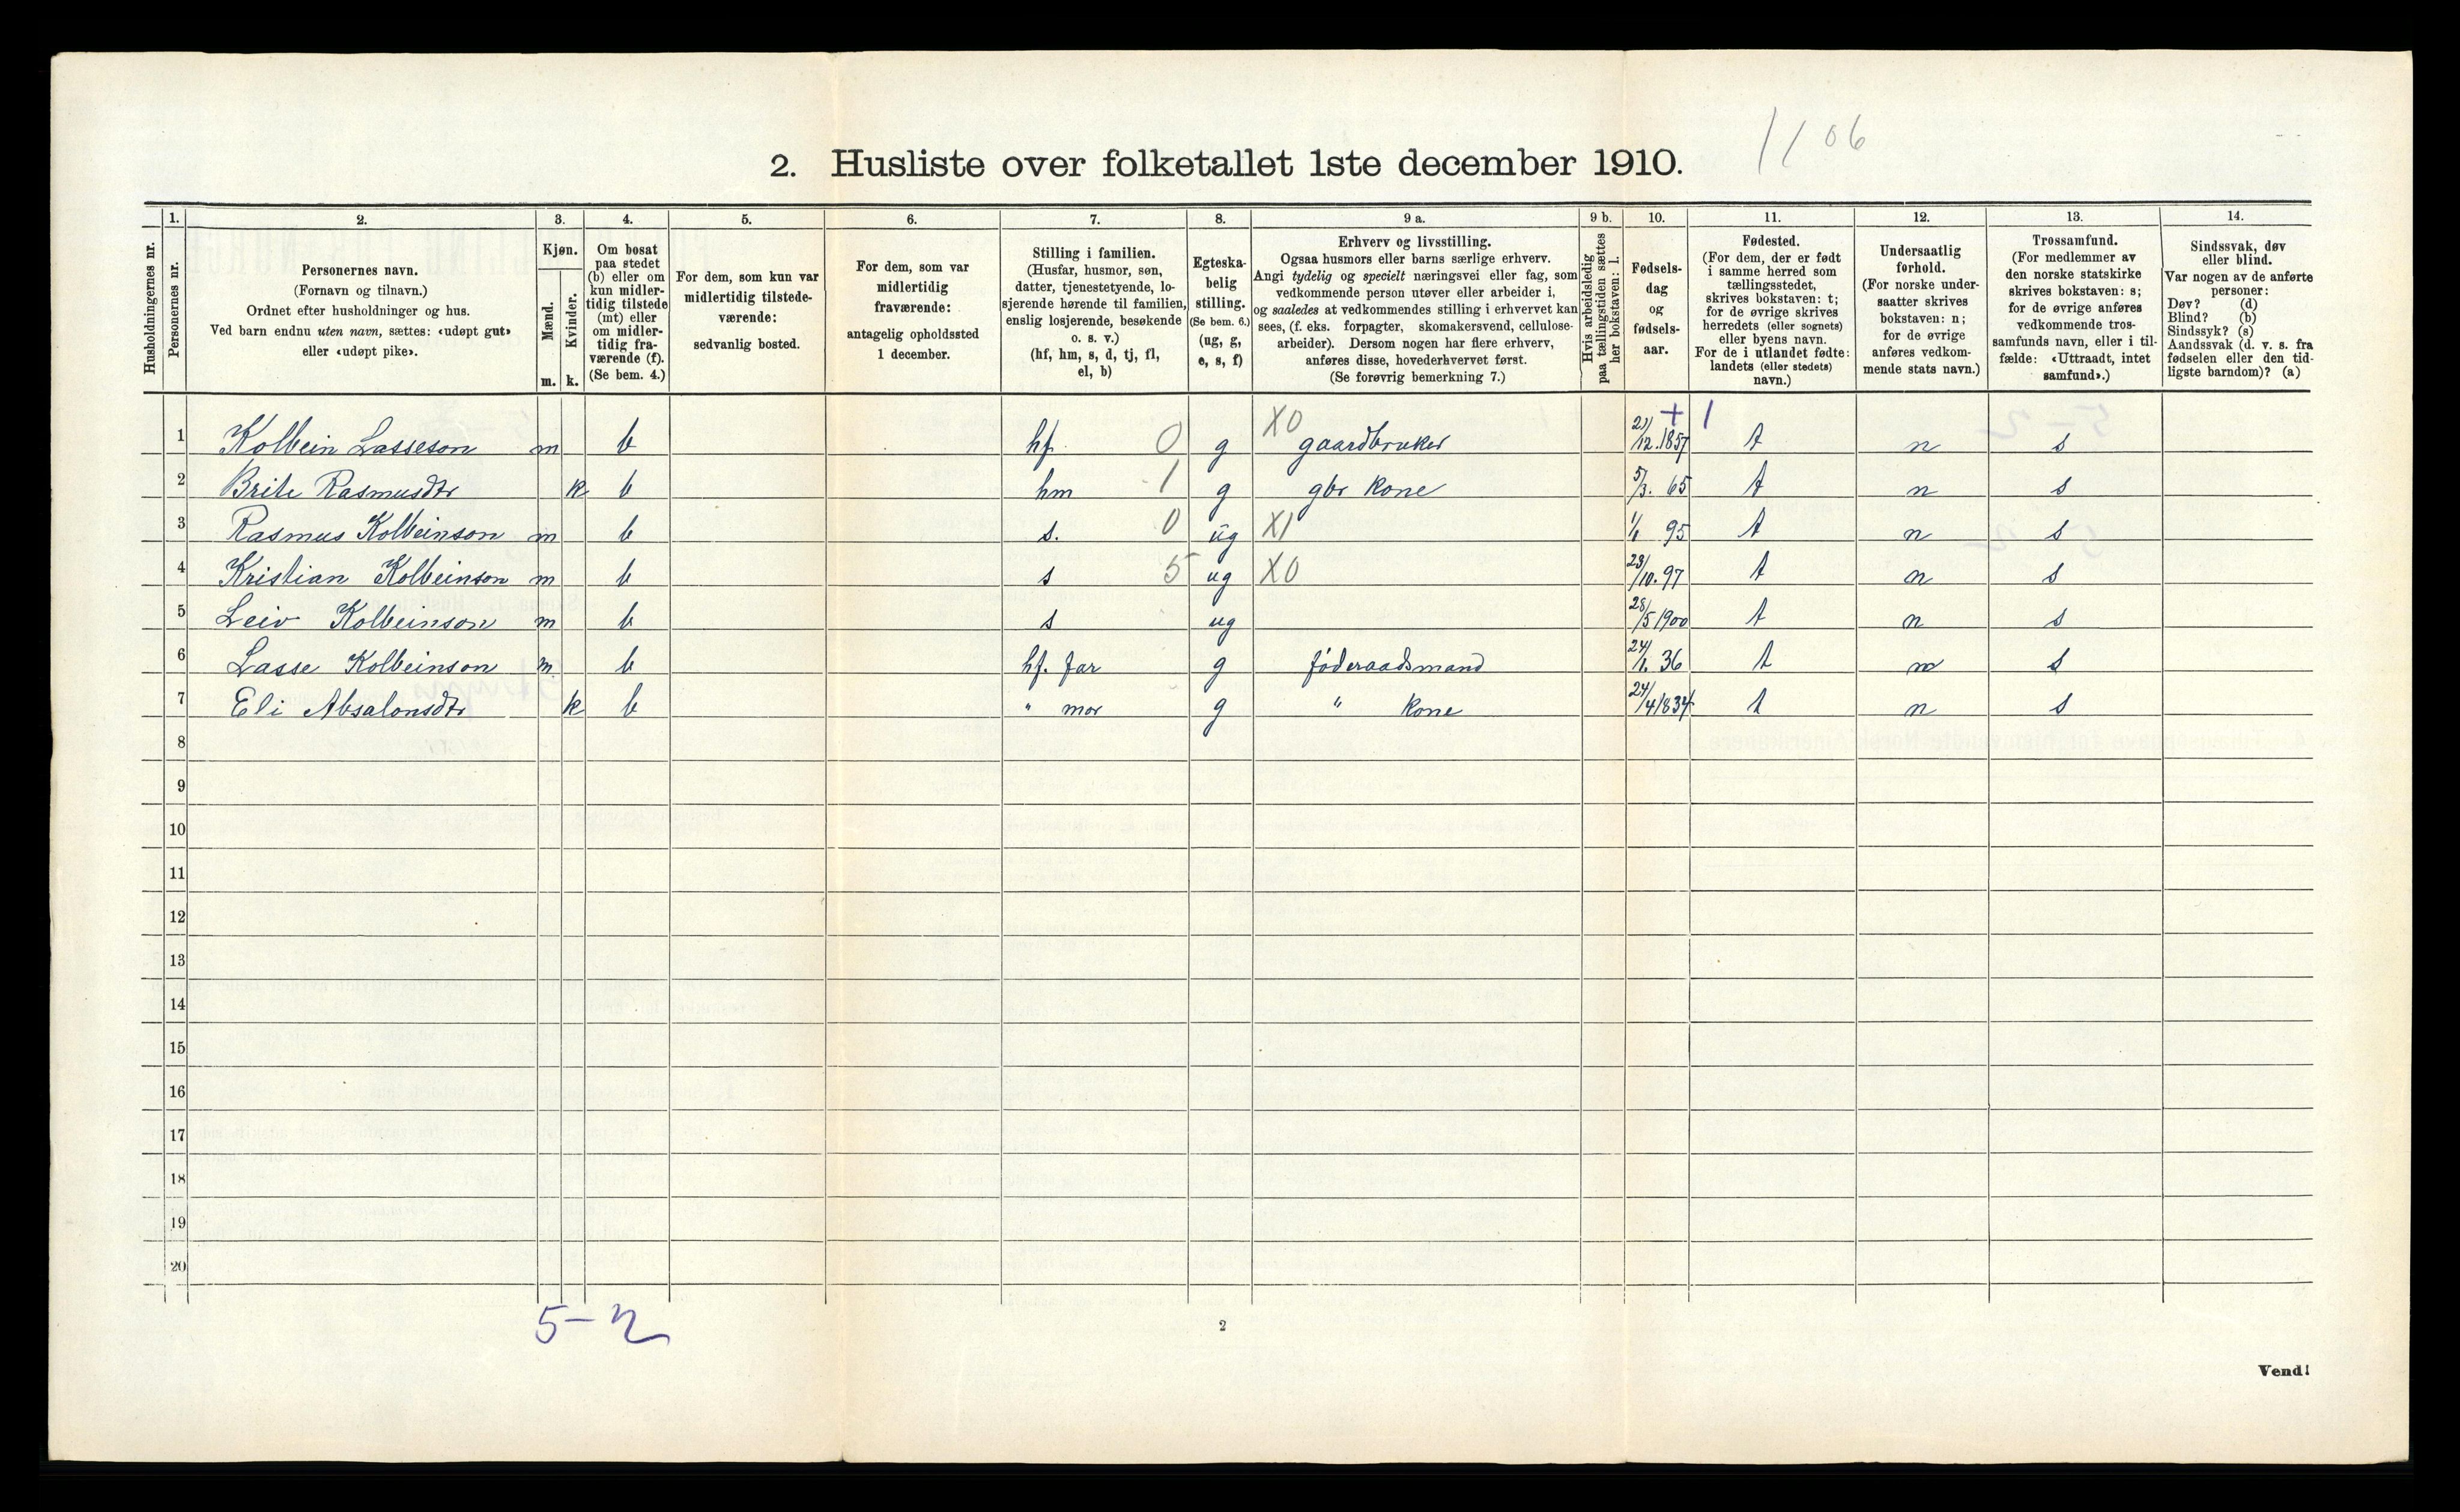 1106
2. Husliste over folketallet 1ste december 1910.
Husholdningernes nr.
1. Personernes nr.
2. Personernes navn.
(Fornavn og tilnavn.)
Ordnet efter husholdninger og hus.
Ved barn endnu uten navn, sættes: «udøpt gut»
eller «udøpt pike».
3. Kjøn.
Mænd. m.
Kvinder. k.
4. Om bosat
paa stedet
(b) eller om
kun midler-
tidig tilstede
(mt) eller
om midler-
tidig fra-
værende (f).
(Se bem. 4.)
5. For dem, som kun var
midlertidig tilstede-
værende:
sedvanlig bosted.
6. For dem, som var
midlertidig
fraværende:
antagelig opholdssted
1 december.
7. Stilling i familien.
(Husfar, husmor, søn,
datter, tjenestetyende, lo-
sjerende hørende til familien,
enslig losjerende, besøkende
o. s. v.)
(hf, hm, s, d, tj, fl,
el, b)
8. Egteska-
belig
stilling.
(Se bem. 6.)
(ug, g,
e, s, f)
9 a. Erhverv og livsstilling.
Ogsaa husmors eller barns særlige erhverv.
Angi tydelig og specielt næringsvei eller fag, som
vedkommende person utøver eller arbeider i,
og saaledes at vedkommendes stilling i erhvervet kan
sees, (f. eks. forpagter, skomakersvend, cellulose-
arbeider). Dersom nogen har flere erhverv,
anføres disse, hovederhvervet først.
(Se forøvrig bemerkning 7.)
9 b. Hvis arbeidsledig
paa tællingstiden sættes
her bokstaven: l.
10. Fødsels-
dag
og
fødsels-
aar.
11. Fødested.
(For dem, der er født
i samme herred som
tællingsstedet,
skrives bokstaven: t;
for de øvrige skrives
herredets (eller sognets)
eller byens navn.
For de i utlandet fødte:
landets (eller stedets)
navn.)
12. Undersaatlig
forhold.
(For norske under-
saatter skrives
bokstaven: n;
for de øvrige
anføres vedkom-
mende stats navn.)
13. Trossamfund.
(For medlemmer av
den norske statskirke
skrives bokstaven: s;
for de øvrige anføres
vedkommende tros-
samfunds navn, eller i til-
fælde: «Uttraadt, intet
samfund».)
14. Sindssvak, døv
eller blind.
Var nogen av de anførte
personer:
Døv? (d)
Blind? (b)
Sindssyk? (s)
Aandssvak (d. v. s. fra
fødselen eller den tid-
ligste barndom)? (a)
1 Kolbein Lasseson m b hf. 0 g X0 gaardbruker 21/12.1857 + 1 t n s
2 Brite Rasmusdtr k b hm 1 g gbr kone 5/3. 65 t n s
3 Rasmus Kolbeinson m b s. 0 ug X1 1/1 95 t n s
4 Kristian Kolbeinson m b s 5 ug X0 23/10. 97 t n s
5 Leiv Kolbeinson m b s ug 28/5 1900 t n s
6 Lasse Kolbeinson m b hf. far g føderaadsmand 24/1. 36 t n s
7 Eli Absalonsdtr k b " mor g " kone 24/4 1834 t n s
8
9
10
11
12
13
14
15
16
17
18
19
20
5-2
2
Vend!